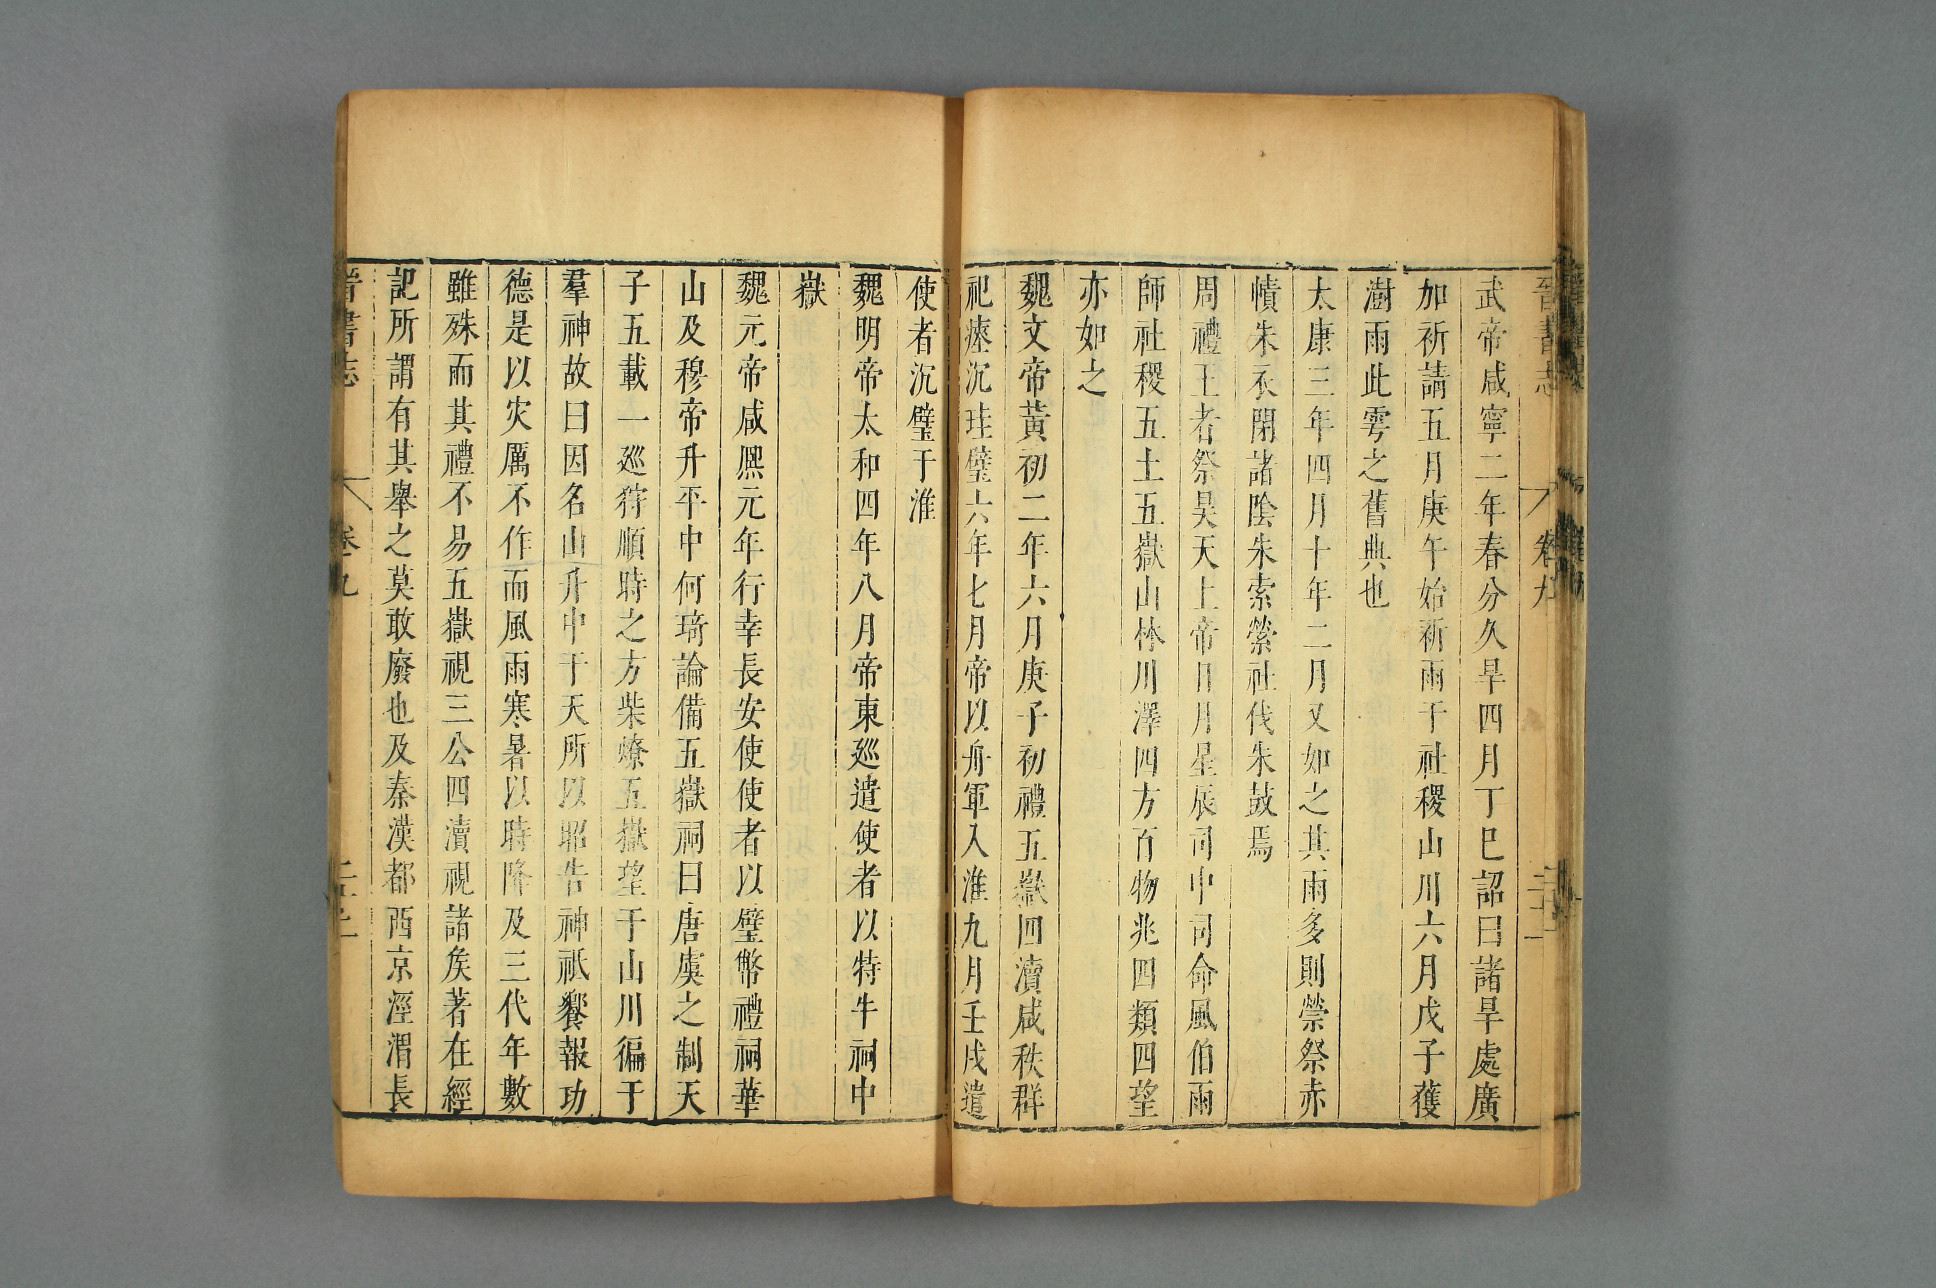 晉書志 卷九
武帝咸寧二年春分久旱四月丁巳詔曰諸旱處廣
加祈請五月庚午始祈雨于社稷山川六月戊子獲
澍雨此雩之舊典也
太康三年四月十年二月又如之其雨多則禜祭赤
幘朱衣閉諸陰朱索縈社伐朱鼓焉
周禮王者祭昊天上帝日月星辰司中司命風伯雨
師社稷五土五嶽山林川澤四方百物兆四類四望
亦如之
魏文帝黃初二年六月庚子初禮五嶽四瀆咸秩群
祀瘞沉珪璧六年七月帝以舟軍入淮九月壬戌遣
使者沉璧于淮
魏明帝太和四年八月帝東巡遣使者以特牛祠中
嶽
魏元帝咸熙元年行幸長安使使者以璧幣禮祠華
山及穆帝升平中何琦論備五嶽祠曰唐虞之制天
子五載一巡狩順時之方柴燎五嶽望于山川徧于
羣神故曰因名山升中于天所以昭告神祇饗報功
德是以灾厲不作而風雨寒暑以時降及三代年數
雖殊而其禮不易五嶽視三公四瀆視諸矦著在經
記所謂有其舉之莫敢廢也及秦漢都西京涇渭長
晉書志 卷九